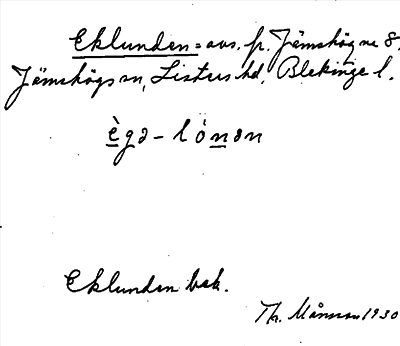 Eklunden = avs. fr. Jämshög nr 8,
Jämshögs sn, Listers hd, Blekinge l.
ègə - lónən
Eklunden bek.
Th. Månsson 1930